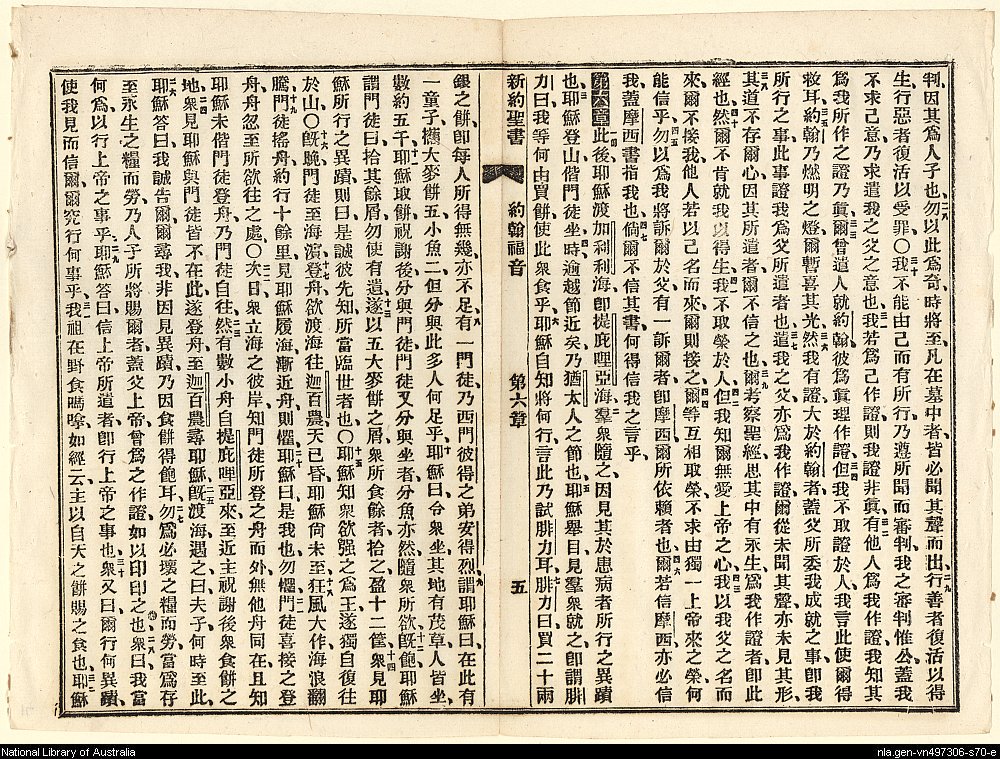 判因其爲人子也勿以此爲奇時將至凡在墓中者皆必聞其聲而出行善者復活以得
生行惡者復活以受罪〇我不能由己而有所行乃遵所聞而審判我之審判惟公蓋我
不求己意乃求遣我之父之意也我若爲己作證則我證非眞有他人爲我作證我知其
爲我所作之證乃眞爾曾遣人就約翰彼爲眞理作證但我不取證於人我言此使爾得
救耳約翰乃燃明之燈爾暫喜其光然我有證大於約翰者蓋父所委我成就之事卽我
所行之事此事證我爲父所遣者也遣我之父亦爲我作證爾從未聞其聲亦未見其形
其道不存爾心因其所遣者爾不信之也爾考察聖經思其中有永生爲我作證者卽此
經也然爾不肯就我以得生我不取榮於人但我知爾無愛上帝之心我以我父之名而
來爾不接我他人若以己名而來爾則接之爾等互相取榮不求由獨一上帝來之榮何
能信乎勿以爲我將訴爾於父有一訴爾者卽摩西爾所依賴者也爾若信摩西亦必信
我蓋摩西書指我也倘爾不信其書何得信我之言乎
第六章此後耶穌渡加利利海卽提庇哩亞海羣衆隨之因見其於患病者所行之異蹟
也耶穌登山偕門徒坐時逾越節近矣乃猶太人之節也耶穌舉目見羣衆就之卽謂腓
力曰我等何由買餅使此衆食乎耶穌自知將何行言此乃試腓力耳腓力曰買二十兩
新約聖書 約翰福音 第六章 五
銀之餅卽每人所得無幾亦不足有一門徒乃西門彼得之弟安得烈謂耶穌曰在此有
一童子攜大麥餅五小魚二但分與此多人何足乎耶穌曰令衆坐其地有茂草人皆坐
數約五千耶穌取餅祝謝後分與門徒門徒又分與坐者分魚亦然隨衆所欲旣飽耶穌
謂門徒曰拾其餘屑勿使有遺遂以五大麥餅之屑衆所食餘者拾之盈十二筐衆見耶
穌所行之異蹟則曰是誠彼先知所當臨世者也〇耶穌知衆欲强之爲王遂獨自復往
於山〇旣晚門徒至海濱登舟欲渡海往迦百農天已昏耶穌尚未至狂風大作海浪翻
騰門徒搖舟約行十餘里見耶穌履海漸近舟則懼耶穌曰是我也勿懼門徒喜接之登
舟舟忽至所欲往之處〇次日衆立海之彼岸知門徒所登之舟而外無他舟同在且知
耶穌未偕門徒登舟乃門徒自往然有數小舟自提庇哩亞來至近主祝謝後衆食餅之
地衆見耶穌與門徒皆不在此遂登舟至迦百農尋耶穌旣渡海遇之曰夫子何時至此
耶穌答曰我誠告爾爾尋我非因見異蹟乃因食餅得飽耳勿爲必壞之糧而勞當爲存
至永生之糧而勞乃人子所將賜爾者蓋父上帝曾爲之作證如以印印之也衆曰我當
何爲以行上帝之事乎耶穌答曰信上帝所遣者卽行上帝之事也衆又曰爾行何異蹟
使我見而信爾爾究行何事乎我祖在野食嗎嗱如經云主以自天之餅賜之食也耶穌
National Library of Australia
nla.gen-vn497306-s70-e